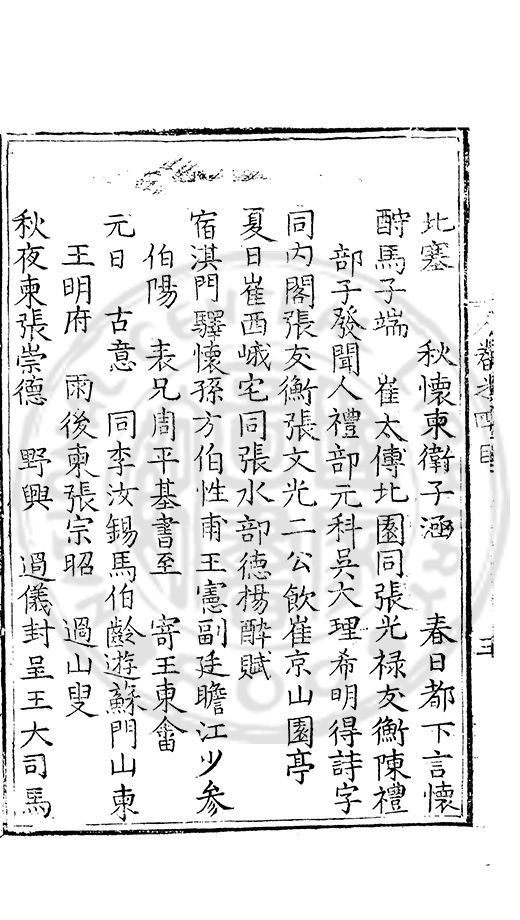 北塞　秋懷柬衛子涵　春日都下言懷
酧馬子端　崔太傅北園同張光禄友衡陳禮
部子發聞人禮部元科吳大理希明得詩字
同内閣張友衡張文光二公飲崔京山園亭
夏日崔西峨宅同張水部德楊醉賦
宿淇門驛懷孫方伯性甫王憲副廷瞻江少參
伯陽　表兄周平基書至　寄王東畬
元日　古意　同李汝錫馬伯齡遊蘇門山柬
王明府　雨後柬張宗昭　過山叟
秋夜柬張崇德　野興　過儀封呈王大司馬